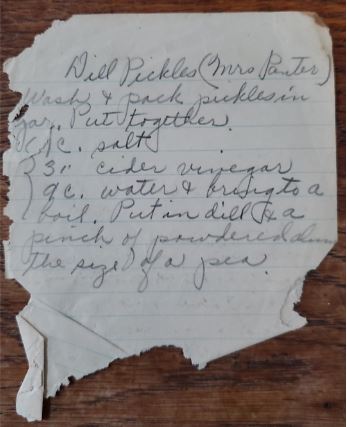 Dill Pickles (Mrs Panter)
Wash & pack pickles in
jar. Put together
1 c. salt
3 " cider vinegar
9 c. water & bring to a
boil. Put in dill & a
pinch of powdered alum
the size of a pea.